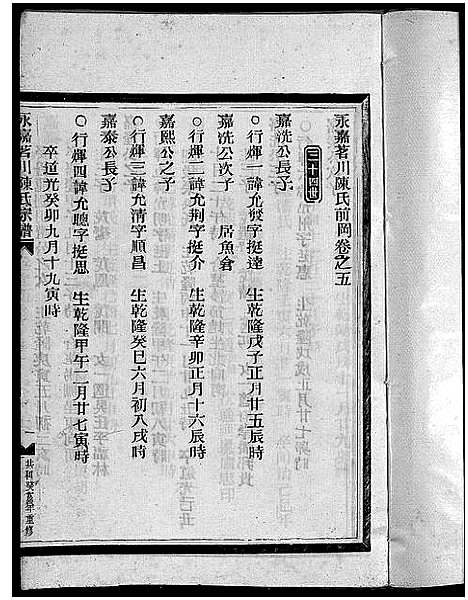 永嘉茗川陳氏前岡卷之五
三十四世
嘉洗公長子
行輝一諱允發字挺達　生乾隆戊子正月廿五辰時
嘉洗公次子　居魚倉
行輝二諱允荆字挺介　生乾隆辛卯正月十六辰時
嘉熙公之子
行輝三諱允清字順昌　生乾隆癸巳六月初八戌時
嘉泰公長子
行輝四諱允聰字挺思　生乾隆甲午二月廿七寅時
卒道光癸卯九月十九寅時
永嘉茗川陳氏宗譜
共和癸亥年重修